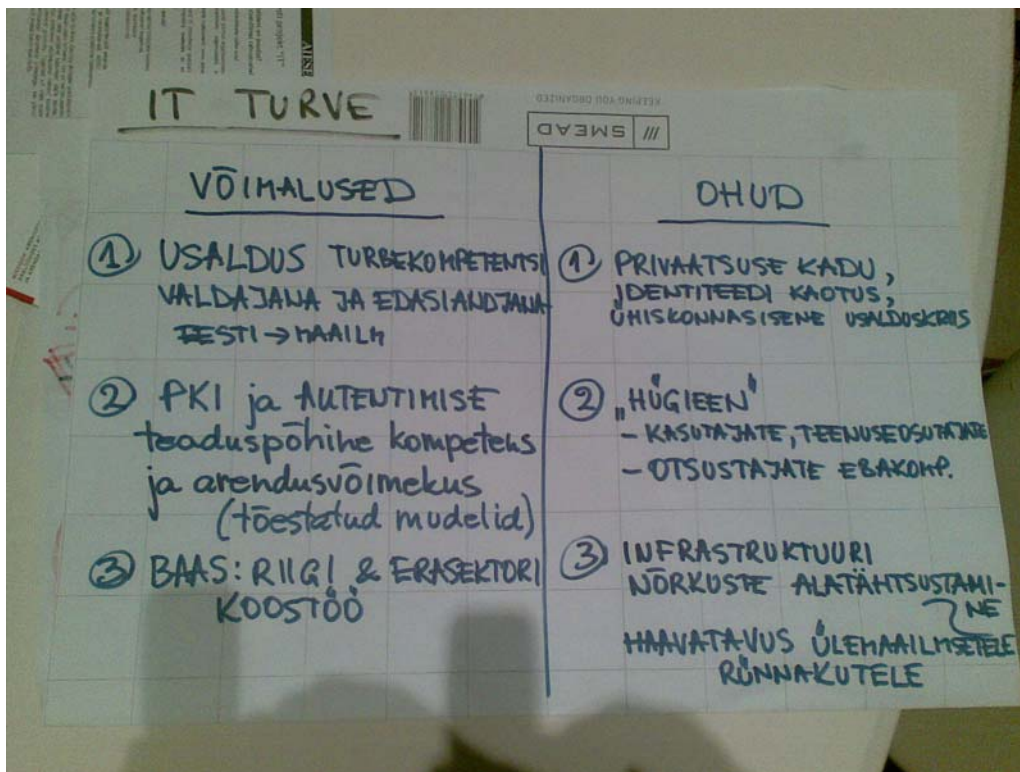 AIISE
IT TURVE
KEEPING YOU ORGANIZED
SMEAD
VÕIMALUSED
① USALDUS TURBEKOMPETENTSI
VALDAJANA JA EDASIANDJANA
EESTI → MAAILM
② PKI ja AUTENTIMISE
teaduspõhine kompetens
ja arendusvõimekus
(tõestatud mudelid)
③ BAAS: RIIGI & ERASEKTORI
KOOSTÖÖ
OHUD
① PRIVAATSUSE KADU,
IDENTITEEDI KAOTUS,
ÜHISKONNASISENE USALDUSKRIIS
② „HÜGIEEN"
- KASUTAJATE, TEENUSEOSUTAJATE
- OTSUSTAJATE EBAKOMP.
③ INFRASTRUKTUURI
NÕRKUSTE ALATÄHTSUSTAMI-
NE
HAAVATAVUS ÜLEMAAILMSETELE
RÜNNAKUTELE